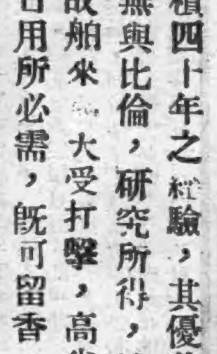 積四十年之經驗，其優
無與比倫，研究所得，
故舶來 大受打擊，高
日用所必需，既可留香